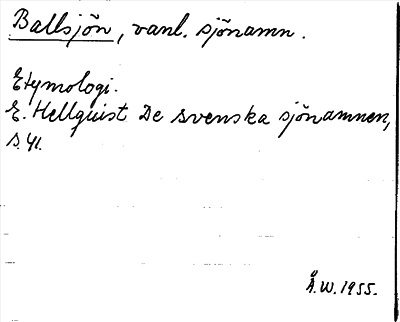 Ballsjön, vanl. sjönamn.
Etymologi.
E. Hellquist De svenska sjönamnen,
s. 41.
Å.W. 1955.